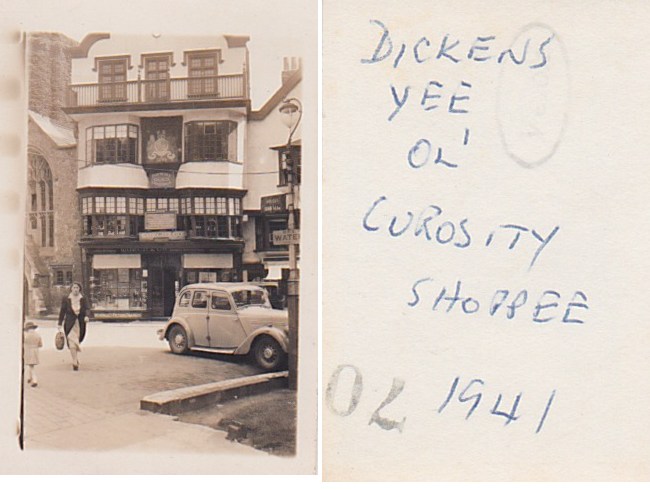 WATE
DICKENS
YEE
OL'
CUROSITY
SHOPPEE
1941
70